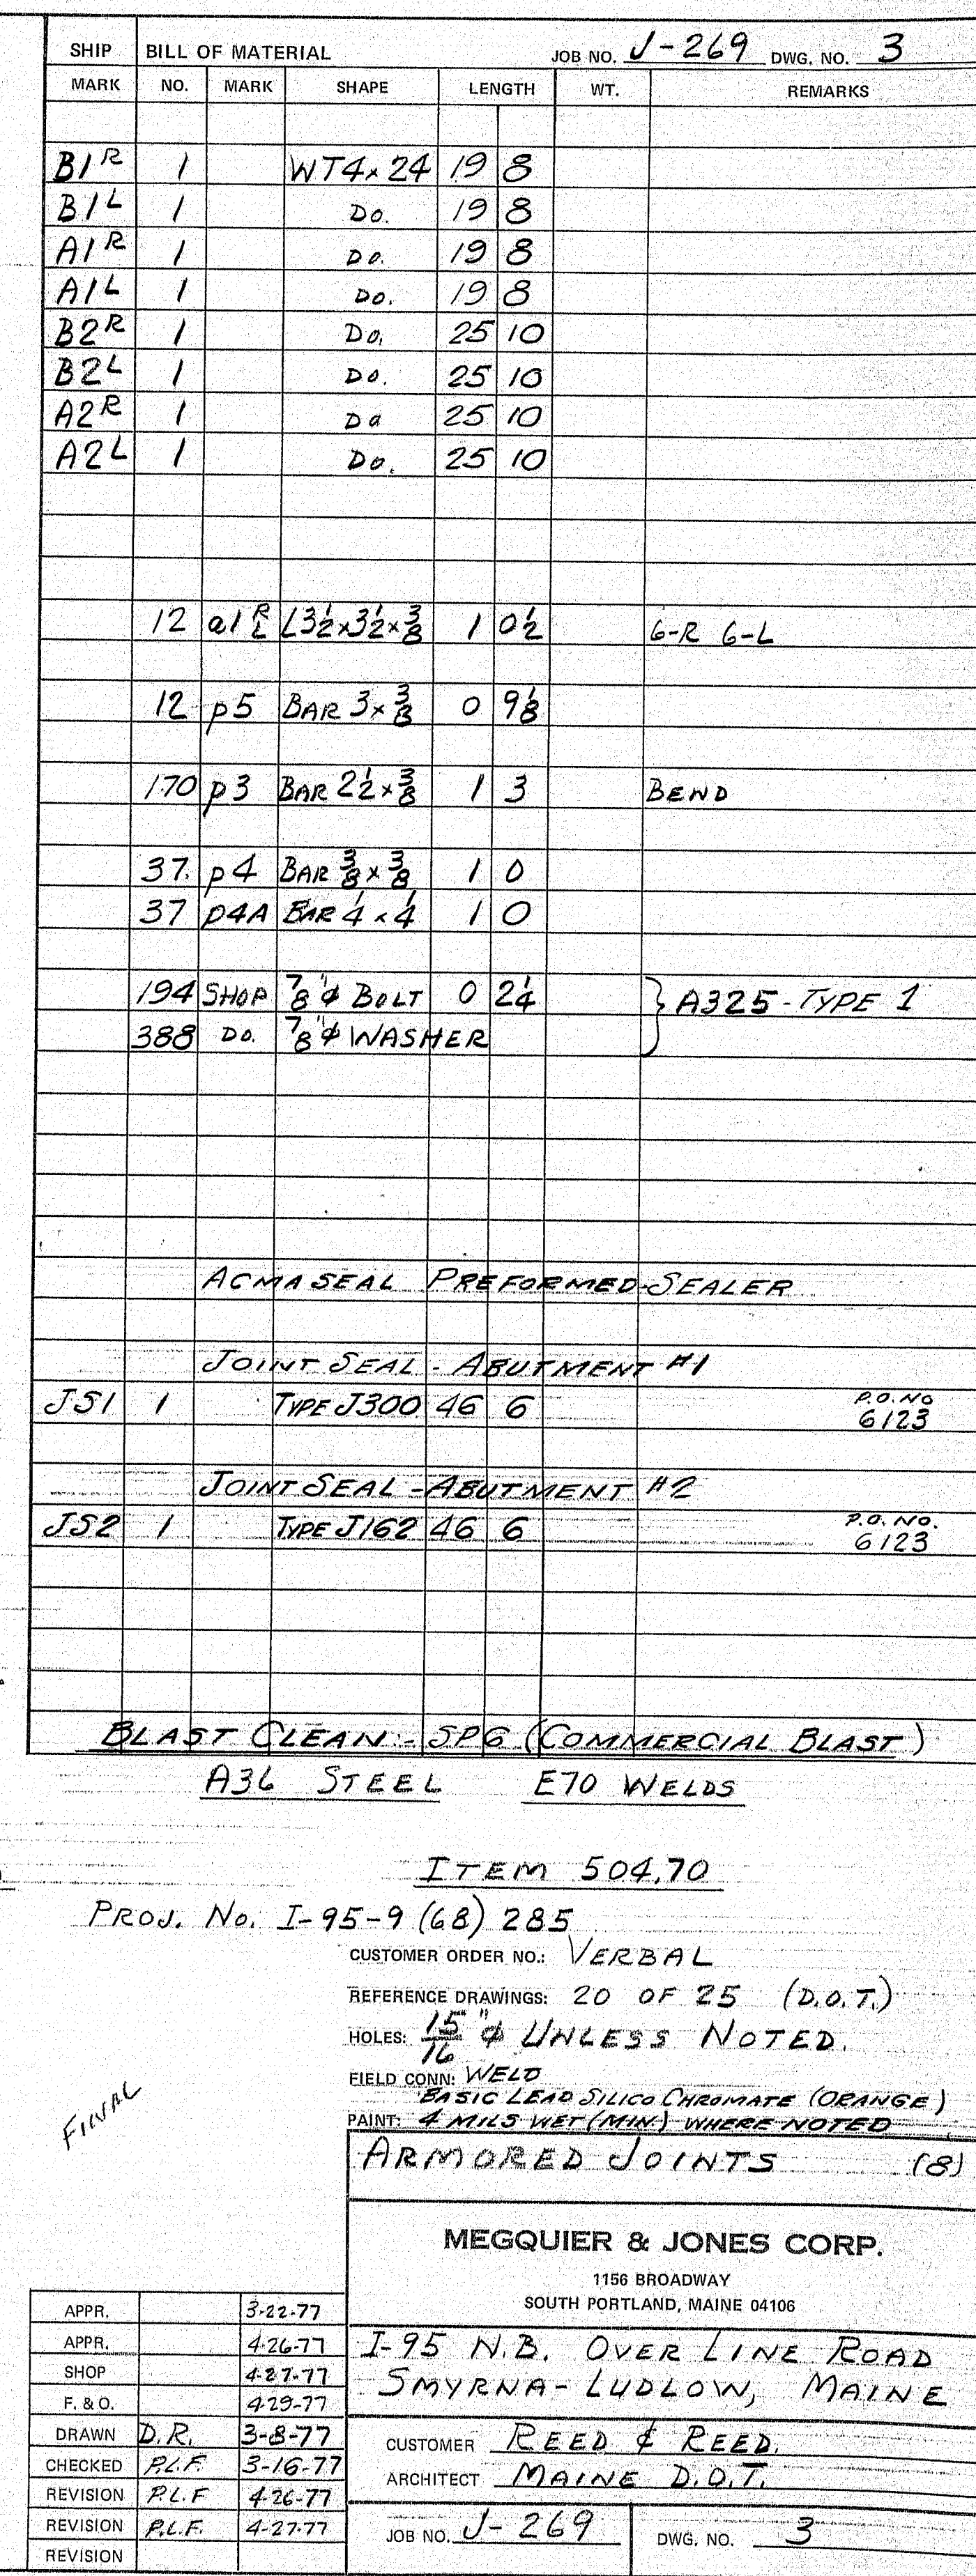 SHIP BILL OF MATERIAL JOB NO. J-269 DWG. NO. 3
MARK NO. MARK SHAPE LENGTH WT. REMARKS
B1R 1 WT4x24 19 8
B1L 1 Do. 19 8
A1R 1 Do. 19 8
A1L 1 Do. 19 8
B2R 1 Do. 25 10
B2L 1 Do. 25 10
A2R 1 Do 25 10
A2L 1 Do. 25 10
12 a1 R/L L3½x3½x3/8 1 0½ 6-R 6-L
12 p5 BAR 3x3/8 0 9⅛
170 p3 BAR 2½x3/8 1 3 BEND
37 p4 BAR 3/8x3/8 1 0
37 p4A BAR ¼x¼ 1 0
194 SHOP 7/8"φ BOLT 0 2¼ } A325-TYPE 1
388 DO. 7/8"φ WASHER
ACMASEAL PREFORMED-SEALER
JOINT SEAL - ABUTMENT #1
JS1 1 TYPE J300 46 6 P.O.NO 6123
JOINT SEAL - ABUTMENT #2
JS2 1 TYPE J162 46 6 P.O.NO. 6123
BLAST CLEAN - SP6 (COMMERCIAL BLAST)
A36 STEEL E70 WELDS
ITEM 504.70
PROJ. NO. I-95-9 (68) 285
CUSTOMER ORDER NO.: VERBAL
REFERENCE DRAWINGS: 20 OF 25 (D.O.T.)
HOLES: 15/16"φ UNLESS NOTED.
FIELD CONN: WELD
BASIC LEAD SILICO CHROMATE (ORANGE)
PAINT: 4 MILS WET (MIN.) WHERE NOTED
FINAL
ARMORED JOINTS (8)
MEGQUIER & JONES CORP.
1156 BROADWAY
SOUTH PORTLAND, MAINE 04106
I-95 N.B. OVER LINE ROAD
SMYRNA-LUDLOW, MAINE
CUSTOMER REED & REED.
ARCHITECT MAINE D.O.T.
JOB NO. J-269 DWG. NO. 3
APPR. 3-22-77
APPR. 4-26-77
SHOP 4-27-77
F. & O. 4-29-77
DRAWN D.R. 3-8-77
CHECKED P.L.F. 3-16-77
REVISION P.L.F 4-26-77
REVISION P.L.F. 4-27-77
REVISION